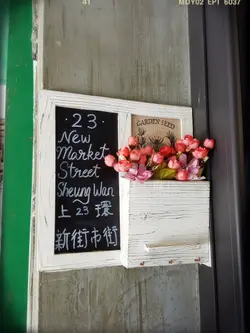 41
MDY02 EPT 6037
· 23 ·
New
Market
Street
Sheung Wan
上 23 環
新街市街
GARDEN SEED